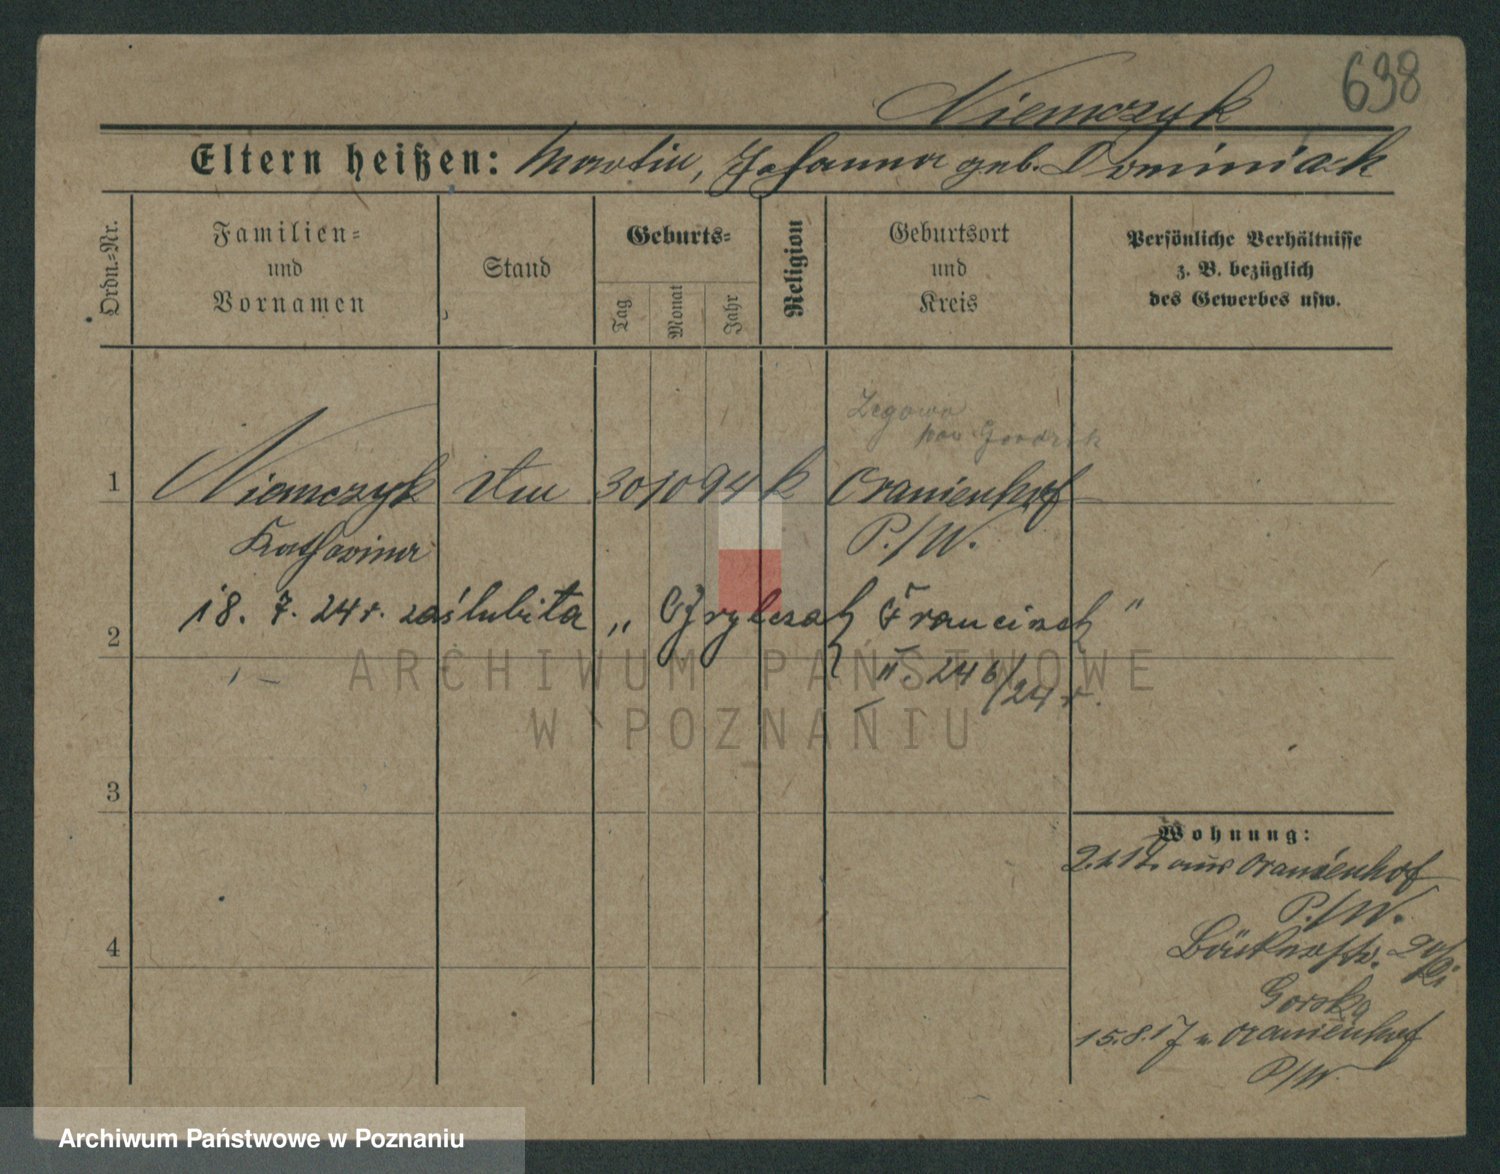 638
Niemczyk
Eltern heißen: Martin, Johanna geb. Dominiak
Ordn.-Nr.
Familien- und Vornamen
Stand
Geburts-
Tag
Monat
Jahr
Religion
Geburtsort und Kreis
Persönliche Verhältnisse z. B. bezüglich des Gewerbes usw.
Zegowo
pow. Grodzisk
1 Niemczyk 30 10 94 k Oranienhof
Katharina P./W.
18. 7. 24 r. zaślubiła „ Grylczak Franciszek "
2
II. 246/24 r.
3
4
Wohnung:
2.2.17. aus Oranienhof
P./W.
Bäckerstr. 20/
Gorska
15.8.17 n. Oranienhof
P/W.
ARCHIWUM PAŃSTWOWE
W POZNANIU
Archiwum Państwowe w Poznaniu